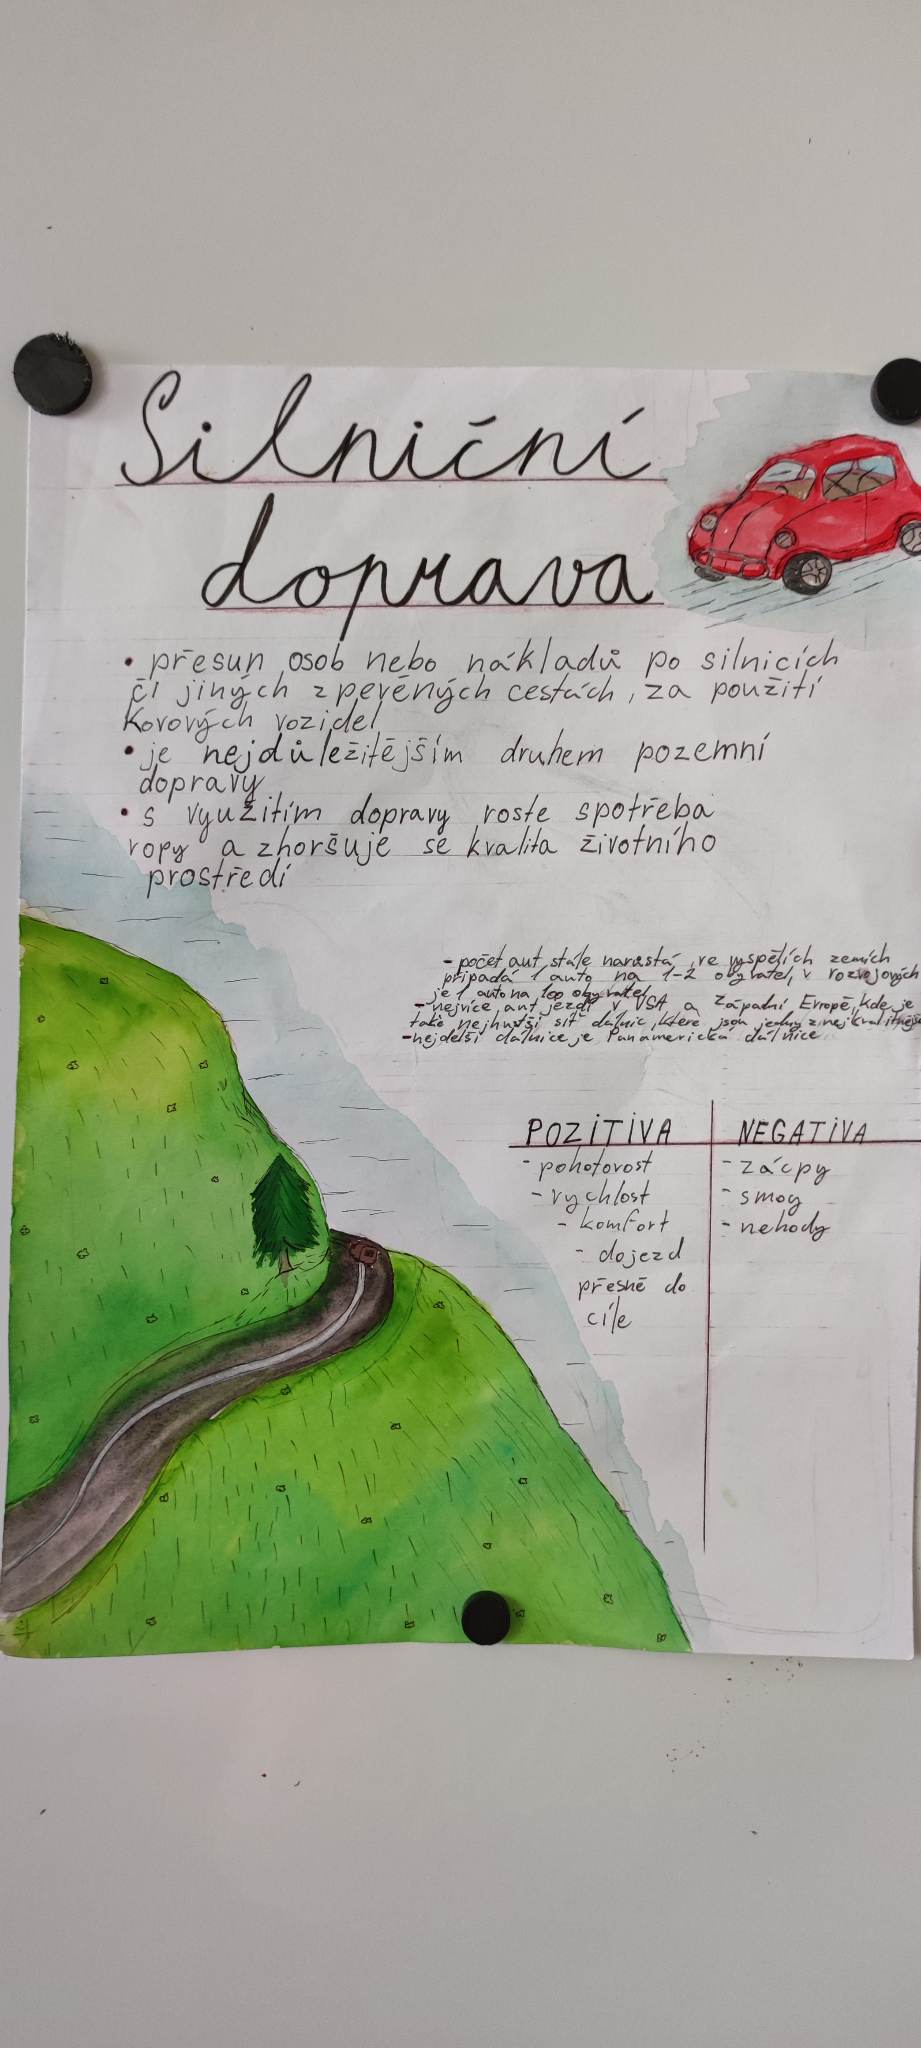 Silniční
doprava
• přesun osob nebo nákladů po silnicích
či jiných zpevěných cestách, za použití
Kovových vozidel
• je nejdůležitějším druhem pozemní
dopravy
• s využitím dopravy roste spotřeba
ropy a zhoršuje se kvalita životního
prostředí
- počet aut stále narůstá, ve vyspělích zemích
připadá 1 auto na 1-2 obyvatel, v rozvojových
je 1 auto na 100 obyvatel
- nejvíce aut jezdí v USA a Západní Evropě, kde je
také nejhustší síť dálnic, které jsou jedny z
- nejdelší dálnice je Panamerická dálnice
POZITIVA
- pohotovost
- rychlost
- komfort
- dojezd
přesně do
cíle
NEGATIVA
- zácpy
- smog
- nehody